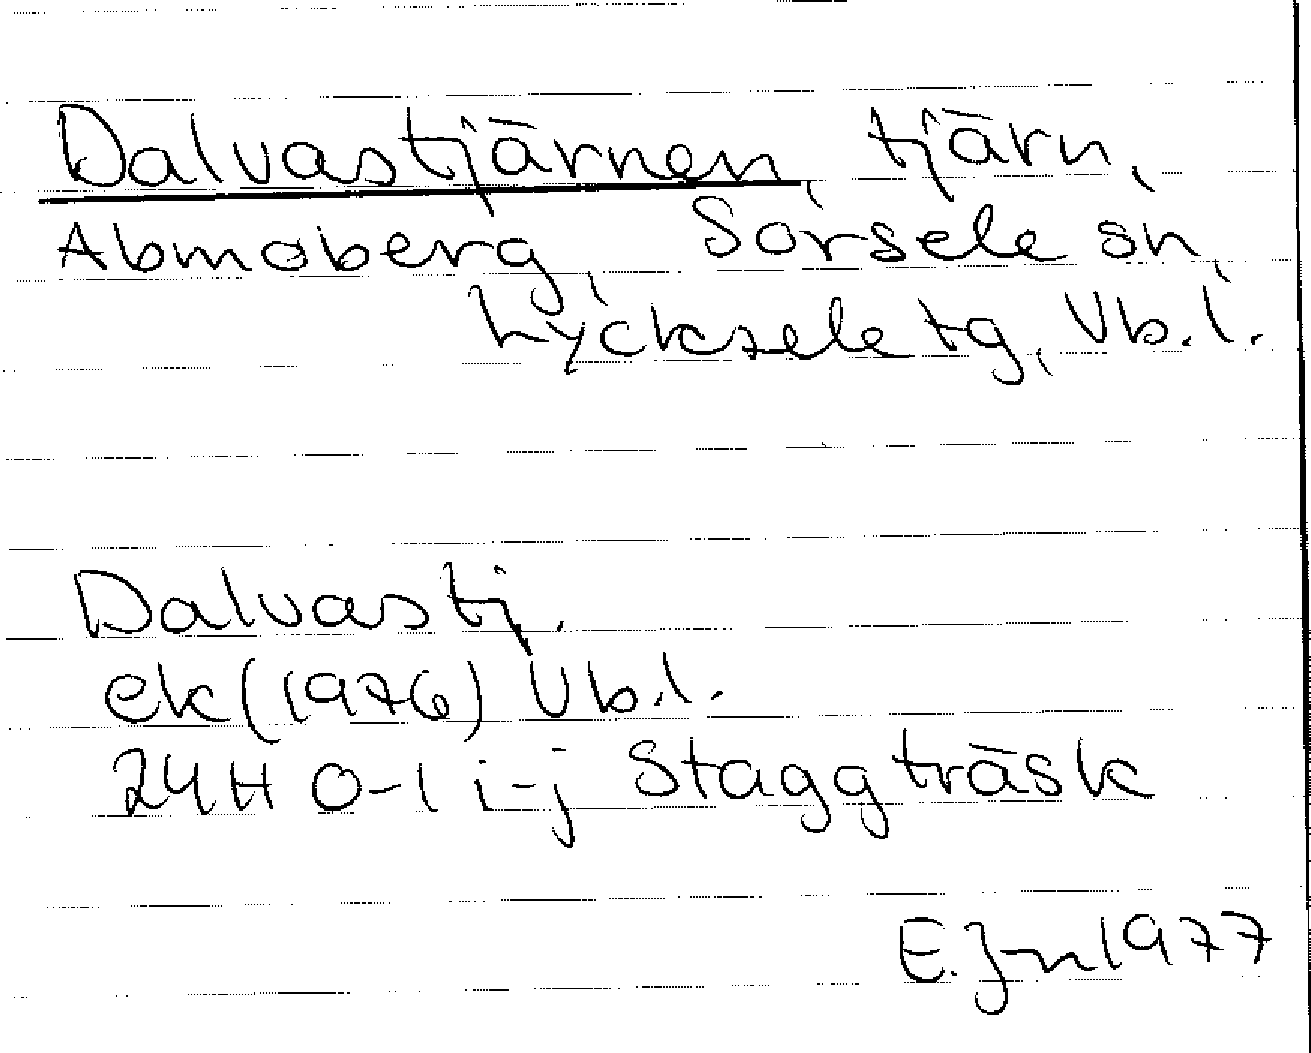 Dalvastjärnen, tjärn,
Abmoberg, Sorsele sn,
Lycksele tg, Vb.l.
Dalvastj.
ek (1976) Vb.l.
24H 0-1 i-j Staggträsk
E. Jn 1977